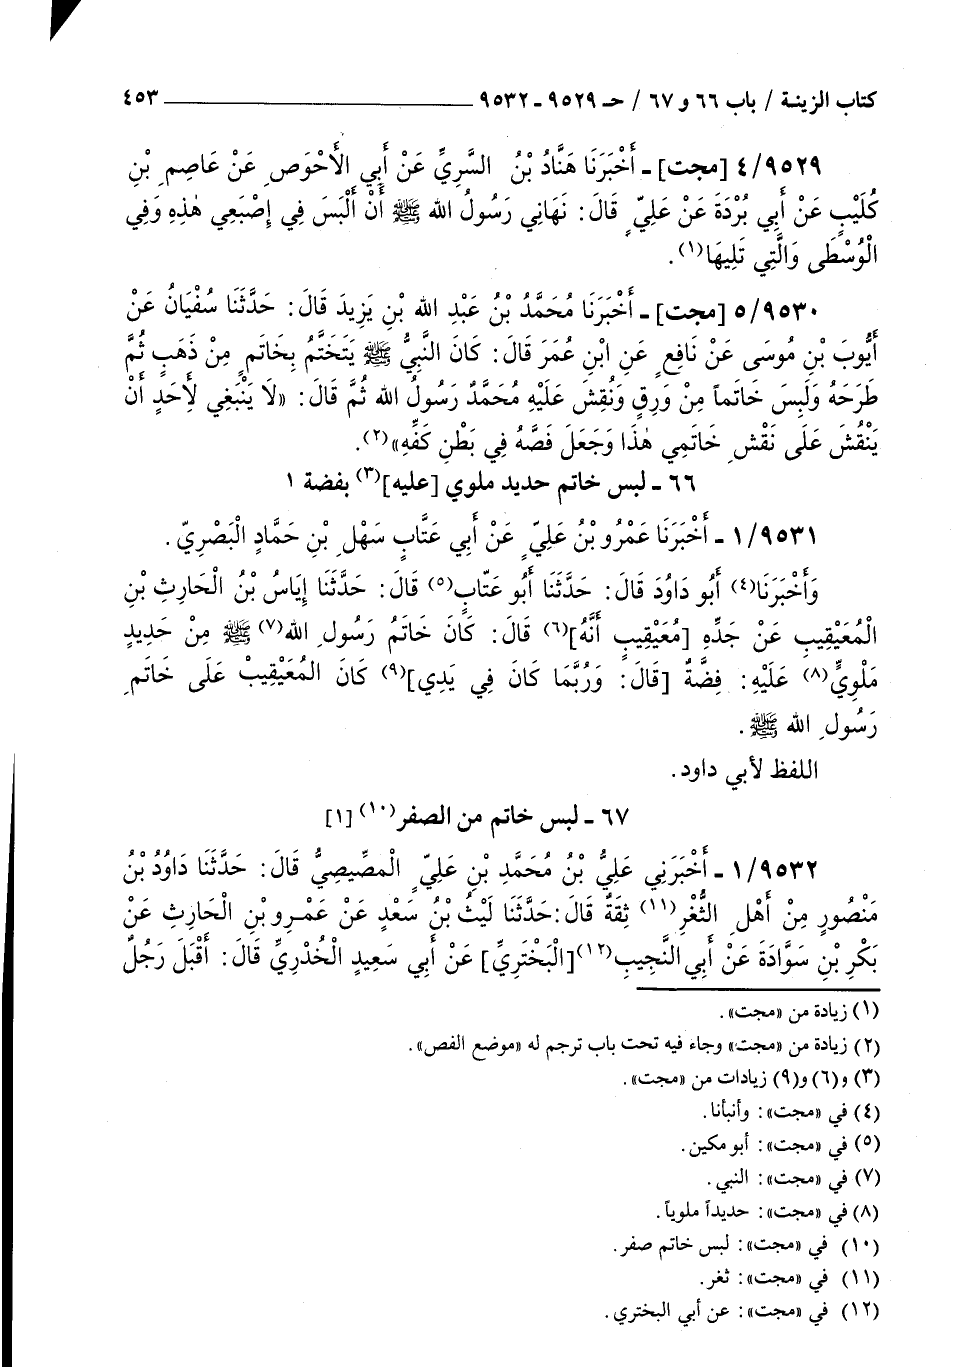 كتاب الزينة / باب ٦٦ و ٦٧ / حـ ٩٥٢٩ ـ ٩٥٣٢ ٤٥٣
٤/٩٥٢٩ [مجت] ـ أَخْبَرَنَا هَنَّادُ بْنُ السَّرِيِّ عَنْ أَبِي الأَحْوَصِ عَنْ عَاصِمِ بْنِ
كُلَيْبٍ عَنْ أَبِي بُرْدَةَ عَنْ عَلِيٍّ قَالَ: نَهَانِي رَسُولُ الله ﷺ أَنْ أَلْبَسَ فِي إِصْبَعِي هٰذِهِ وَفِي
الْوُسْطَى وَالَّتِي تَلِيهَا(١).
٥/٩٥٣٠ [مجت] ـ أَخْبَرَنَا مُحَمَّدُ بْنُ عَبْدِ الله بْنِ يَزِيدَ قَالَ: حَدَّثَنَا سُفْيَانُ عَنْ
أَيُّوبَ بْنِ مُوسَى عَنْ نَافِعٍ عَنِ ابْنِ عُمَرَ قَالَ: كَانَ النَّبِيُّ ﷺ يَتَخَتَّمُ بِخَاتَمٍ مِنْ ذَهَبٍ ثُمَّ
طَرَحَهُ وَلَبِسَ خَاتَماً مِنْ وَرِقٍ وَنُقِشَ عَلَيْهِ مُحَمَّدٌ رَسُولُ الله ثُمَّ قَالَ: «لَا يَنْبَغِي لِأَحَدٍ أَنْ
يَنْقُشَ عَلَى نَقْشِ خَاتَمِي هٰذَا وَجَعَلَ فَصَّهُ فِي بَطْنِ كَفِّهِ»(٢).
٦٦ ـ لبس خاتم حديد ملوي [عليه](٣) بفضة ١
١/٩٥٣١ ـ أَخْبَرَنَا عَمْرُو بْنُ عَلِيٍّ عَنْ أَبِي عَتَّابٍ سَهْلِ بْنِ حَمَّادٍ الْبَصْرِيِّ.
وَأَخْبَرَنَا(٤) أَبُو دَاوُدَ قَالَ: حَدَّثَنَا أَبُو عَتَّابٍ(٥) قَالَ: حَدَّثَنَا إِيَاسُ بْنُ الْحَارِثِ بْنِ
الْمُعَيْقِيبِ عَنْ جَدِّهِ [مُعَيْقِيبٍ أَنَّهُ](٦) قَالَ: كَانَ خَاتَمُ رَسُولِ الله(٧) ﷺ مِنْ حَدِيدٍ
مَلْوِيٍّ(٨) عَلَيْهِ: فِضَّةٌ [قَالَ: وَرُبَّمَا كَانَ فِي يَدِي](٩) كَانَ الْمُعَيْقِيبُ عَلَى خَاتَمِ
رَسُولِ الله ﷺ.
اللفظ لأبي داود.
٦٧ ـ لبس خاتم من الصفر(١٠) [١]
١/٩٥٣٢ ـ أَخْبَرَنِي عَلِيُّ بْنُ مُحَمَّدِ بْنِ عَلِيٍّ الْمصِّيصِيُّ قَالَ: حَدَّثَنَا دَاوُدُ بْنُ
مَنْصُورٍ مِنْ أَهْلِ الثَّغْرِ(١١) ثِقَةٌ قَالَ: حَدَّثَنَا لَيْثُ بْنُ سَعْدٍ عَنْ عَمْرِو بْنِ الْحَارِثِ عَنْ
بَكْرِ بْنِ سَوَّادَةَ عَنْ أَبِي النَّجِيبِ(١٢) [الْبَخْتَرِيِّ] عَنْ أَبِي سَعِيدٍ الْخُدْرِيِّ قَالَ: أَقْبَلَ رَجُلٌ
(١) زيادة من «مجت».
(٢) زيادة من «مجت» وجاء فيه تحت باب ترجم له «موضع الفص».
(٣) و(٦) و(٩) زيادات من «مجت».
(٤) في «مجت»: وأنبأنا.
(٥) في «مجت»: أبو مكين.
(٧) في «مجت»: النبي.
(٨) في «مجت»: حديداً ملوياً.
(١٠) في «مجت»: لبس خاتم صفر.
(١١) في «مجت»: ثغر.
(١٢) في «مجت»: عن أبي البختري.